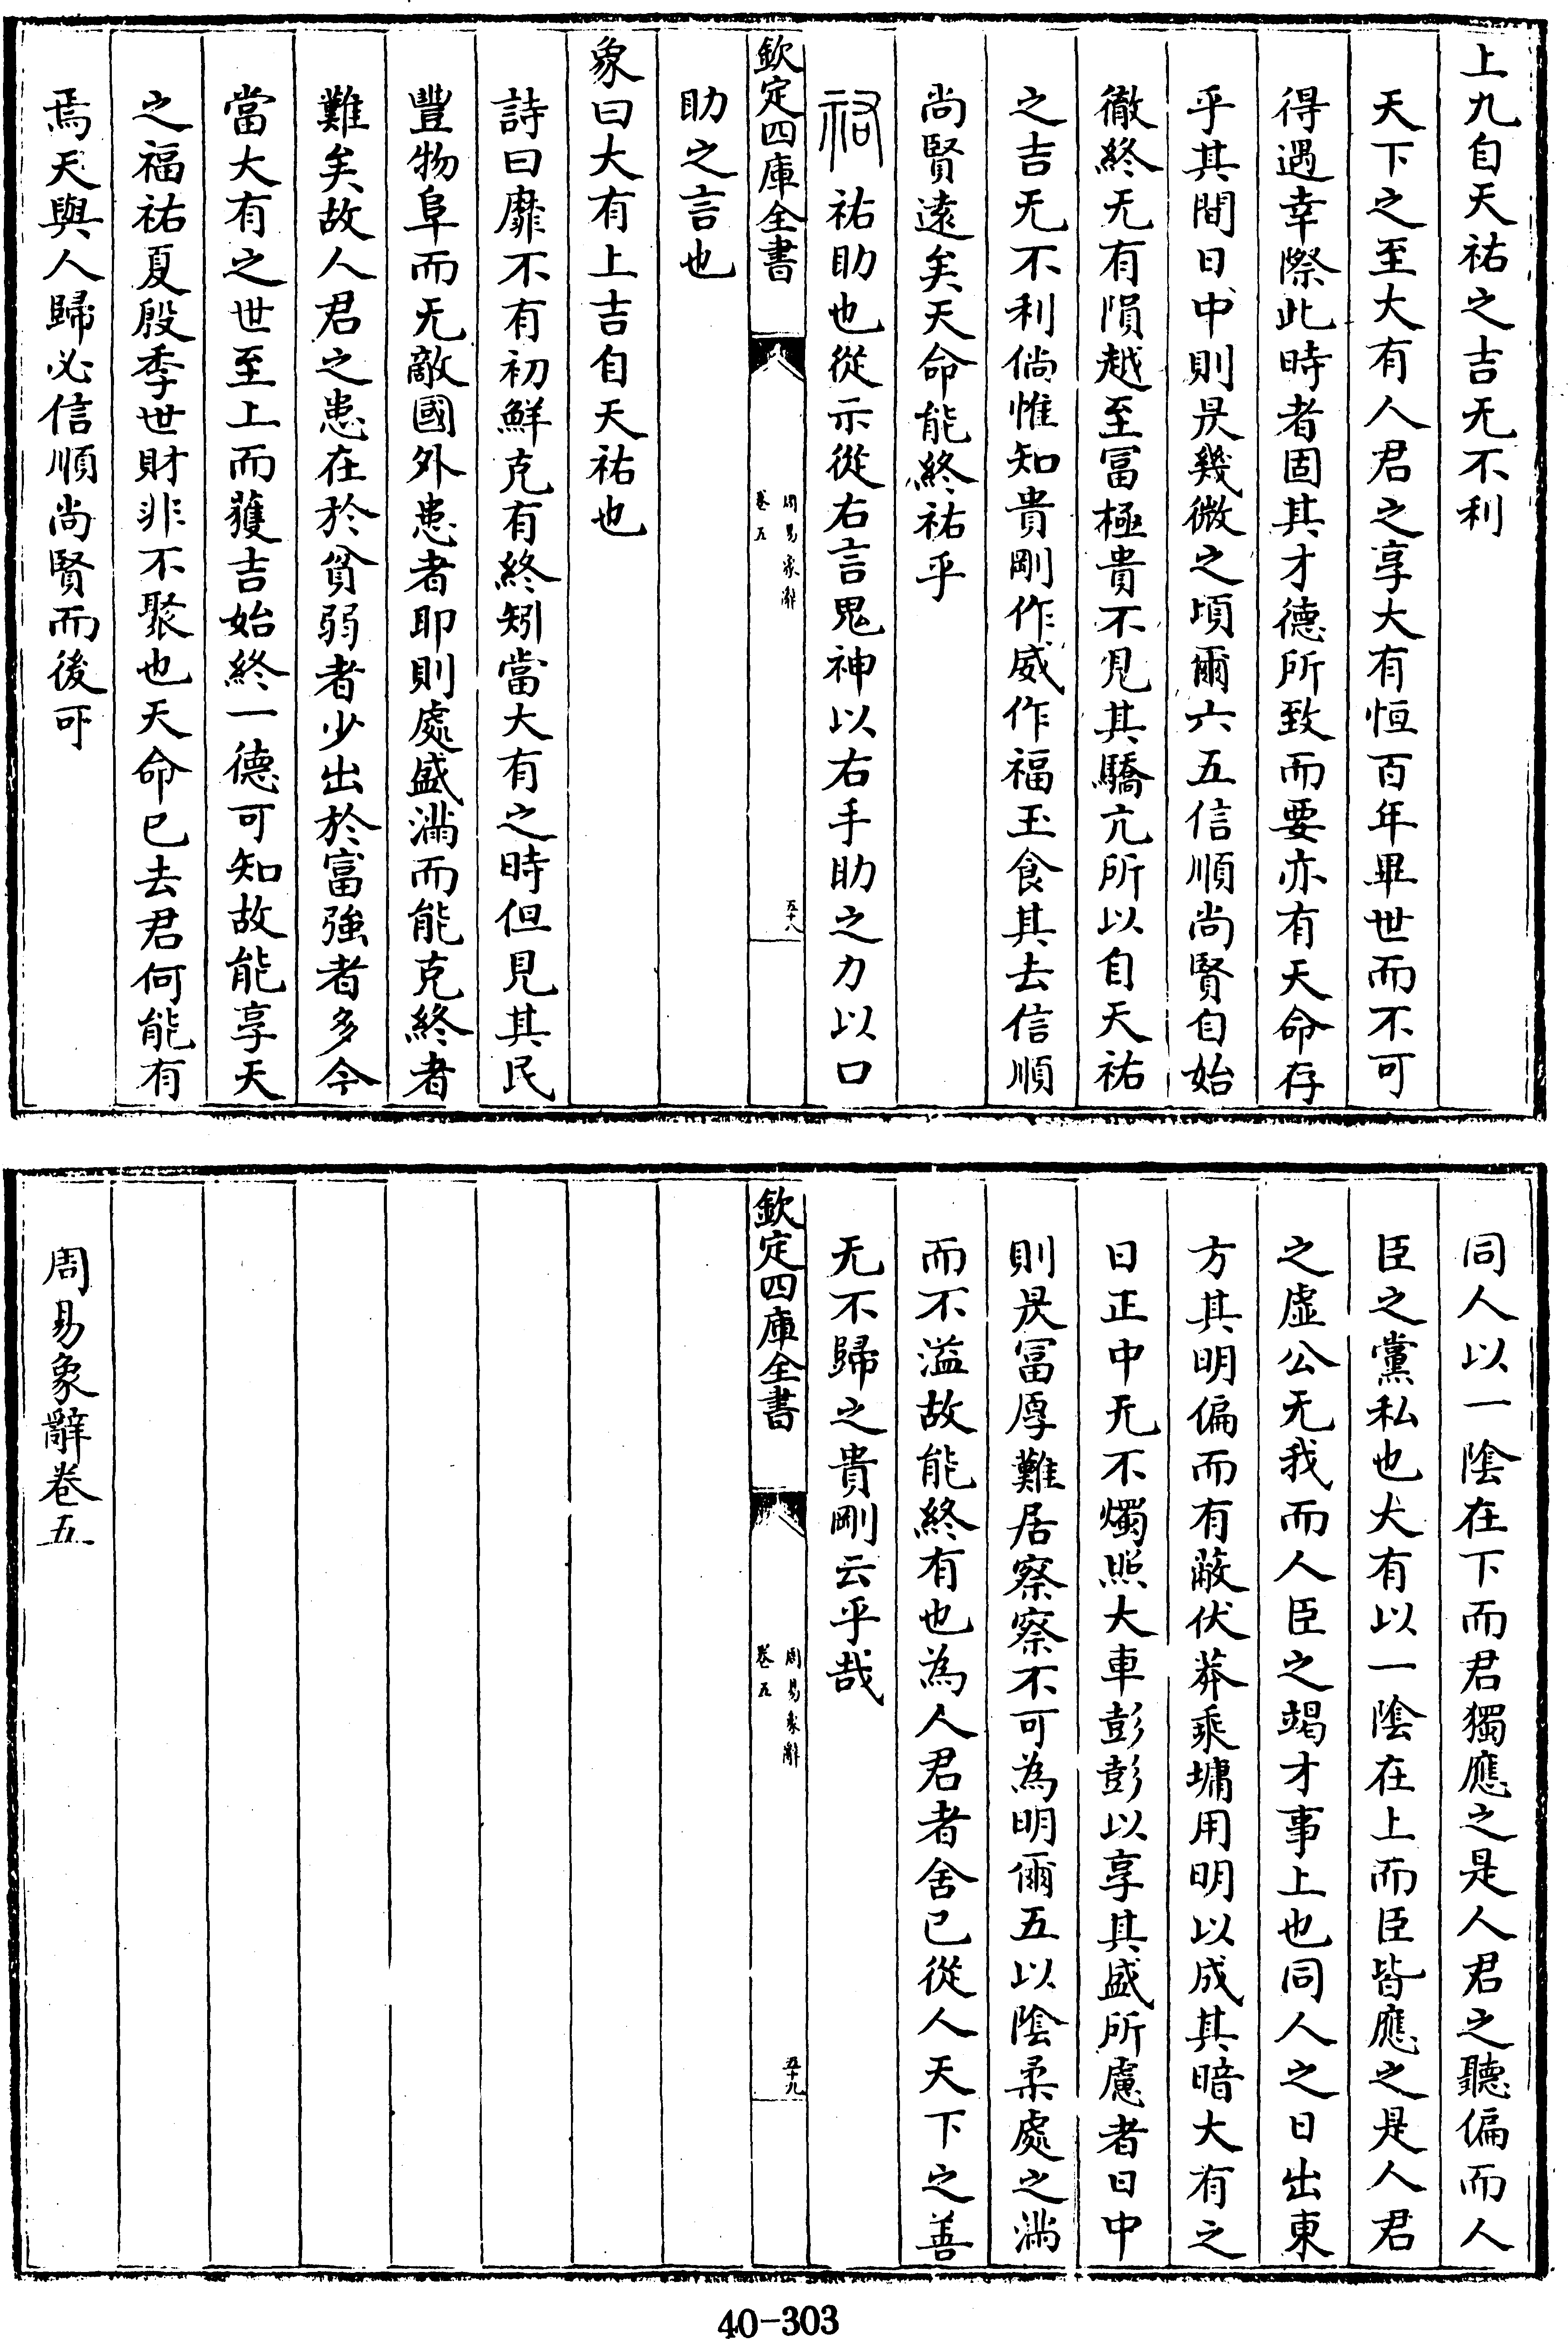 上九自天祐之吉无不利
天下之至大有人君之享大有恒百年畢世而不可
得遇幸際此時者固其才德所致而要亦有天命存
乎其間日中則昃幾微之頃爾六五信順尚賢自始
徹終无有隕越至富極貴不見其驕亢所以自天祐
之吉无不利倘惟知貴剛作威作福玉食其去信順
尚賢遠矣天命能終祐乎
祐助也從示從右言鬼神以右手助之力以口
欽定四庫全書
周易象辭
卷五
五十八
助之言也
象曰大有上吉自天祐也
詩曰靡不有初鮮克有終矧當大有之時但見其民
豐物阜而无敵國外患者耶則處盛滿而能克終者
難矣故人君之患在於貧弱者少出於富強者多今
當大有之世至上而獲吉始終一德可知故能享天
之福祐夏殷季世財非不聚也天命已去君何能有
焉天與人歸必信順尚賢而後可
同人以一陰在下而君獨應之是人君之聽偏而人
臣之黨私也大有以一陰在上而臣皆應之是人君
之虛公无我而人臣之竭才事上也同人之日出東
方其明偏而有蔽伏莽乘墉用明以成其暗大有之
日正中无不燭照大車彭彭以享其盛所慮者日中
則昃富厚難居察察不可為明爾五以陰柔處之滿
而不溢故能終有也為人君者舍已從人天下之善
无不歸之貴剛云乎哉
欽定四庫全書
周易象辭
卷五
五十九
周易象辭卷五
40-303